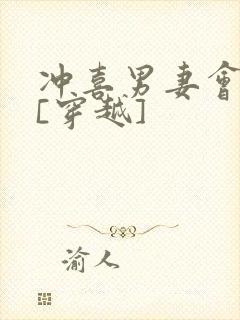 冲喜男妻會
[穿越]
渝人